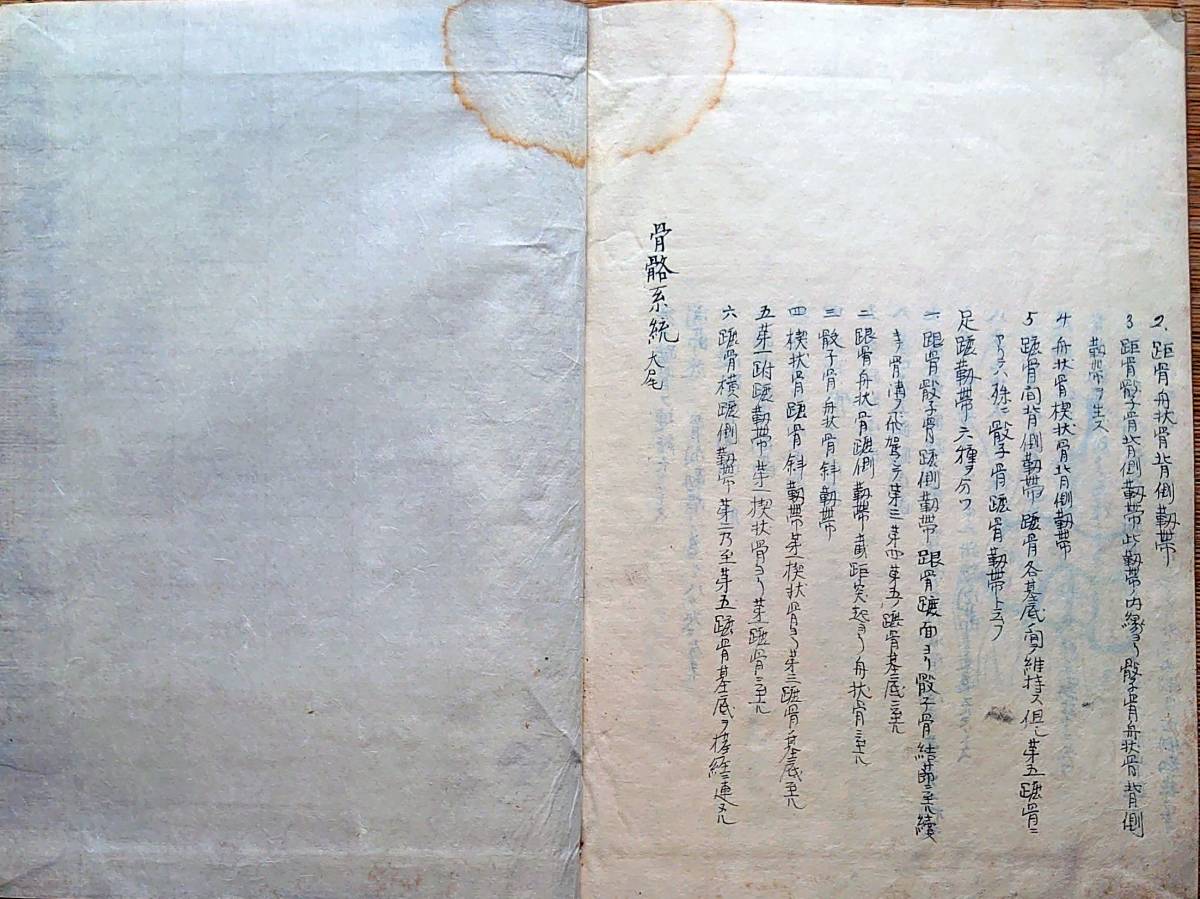 2. 距骨舟状骨背側靱帯
3 距骨骰子骨背側靱帯 此靱帯ノ内縁ヨリ骰子骨舟状骨背側
靱帯ヲ生ス
4 舟状骨楔状骨背側靱帯
5 蹠骨間背側靱帯 蹠骨各基底間ヲ維持ス但シ第五蹠骨ニ
アリテハ殊ニ骰子骨蹠骨靱帯ト云フ
足蹠靱帯六種ヲ分ツ
一 跟骨骰子骨蹠側靱帯 跟骨蹠面ヨリ骰子骨結節ニ至ル續
骨溝ヲ飛駕シテ第三第四第五ノ蹠骨基底ニ至ル
二 跟骨舟状骨蹠側靱帯 載距突起ヨリ舟状骨ニ至ル
三 骰子骨舟状骨斜靱帯
四 楔状骨蹠骨斜靱帯 第一楔状骨ヨリ第三蹠骨基底ニ至ル
五 第一跗蹠靱帯 第一楔状骨ヨリ第一蹠骨ニ至ル
六 蹠骨横蹠側靱帯 第二乃至第五蹠骨基底ヲ横経ニ連ヌル
骨骼系統 大尾